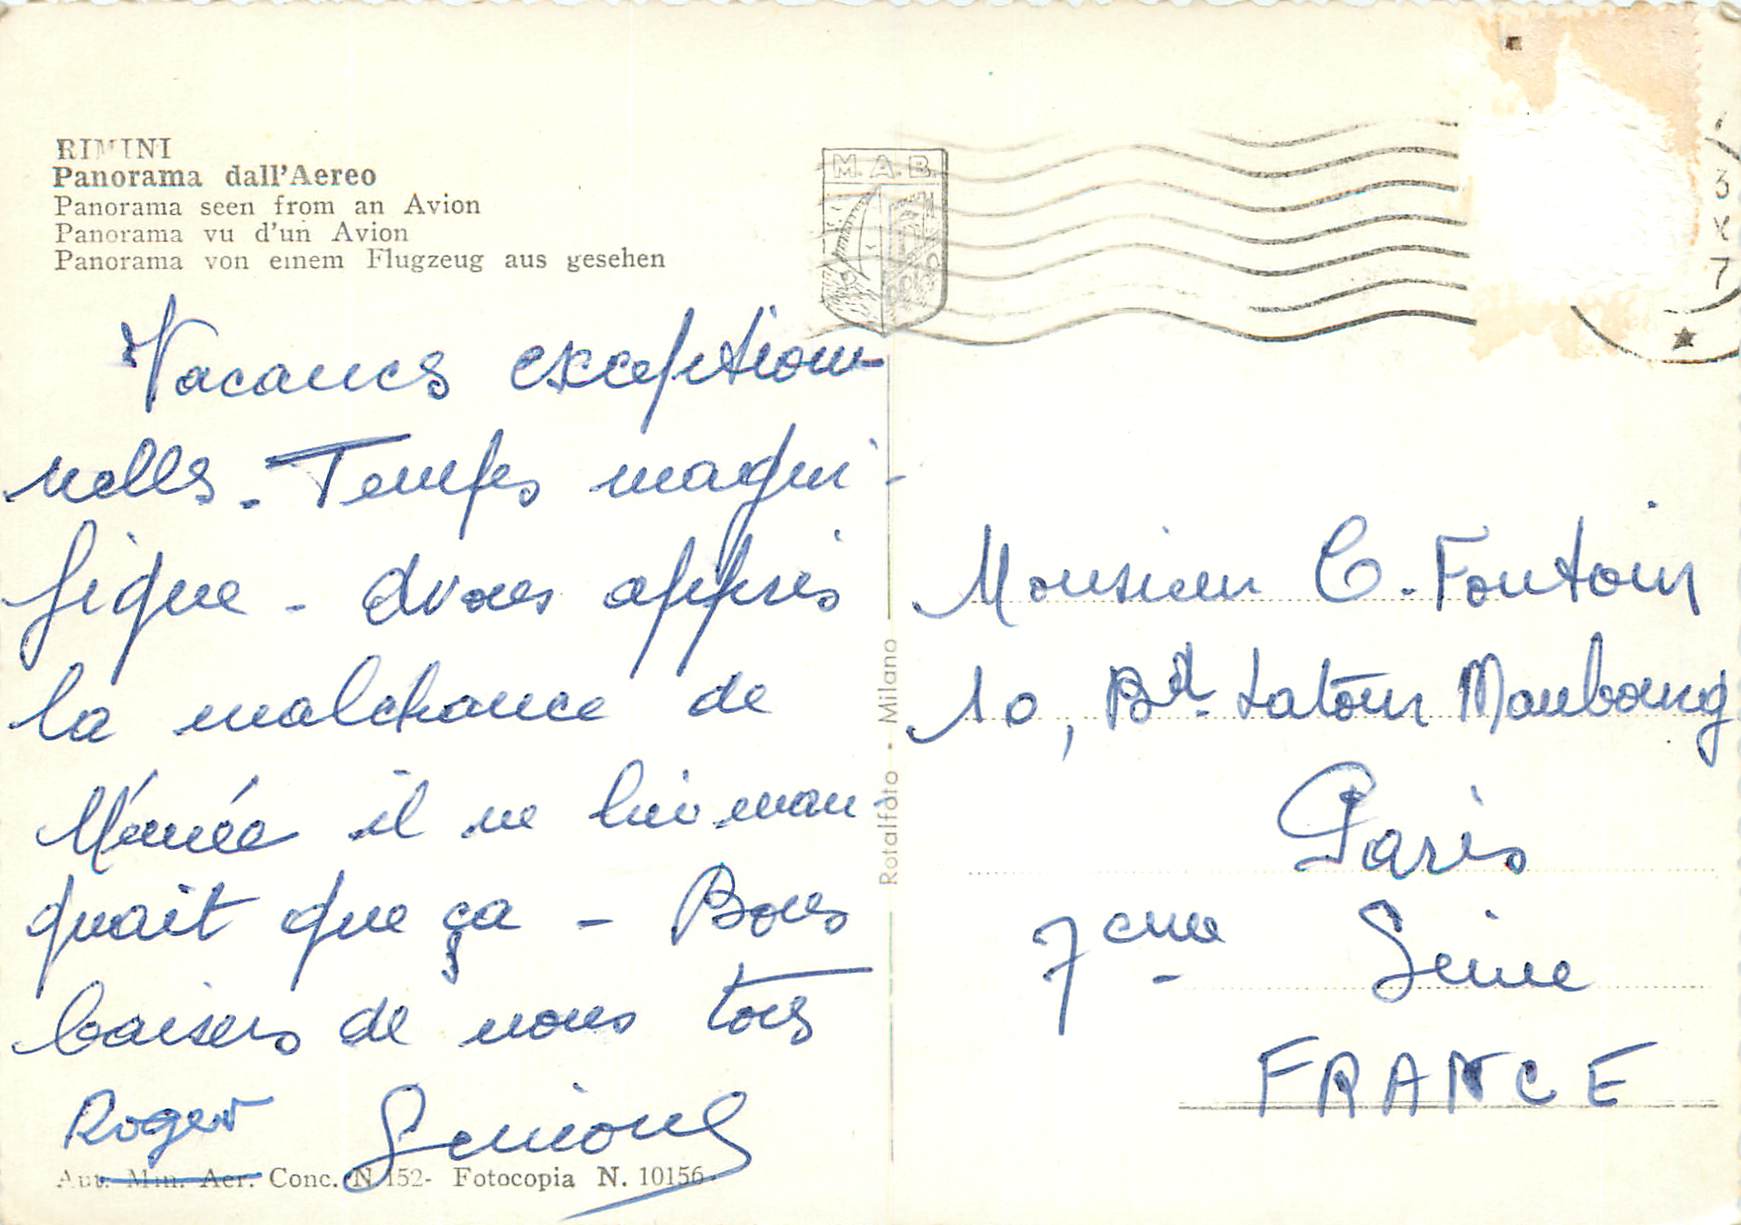 RIMINI
Panorama dall'Aereo
Panorama seen from an Avion
Panorama vu d'un Avion
Panorama von einem Flugzeug aus gesehen
M. A. B.
3
X
7
Vacances exception-
nelles. Temps magni-
fique - avons appris
la malchance de
Mémée il ne lui man-
quait que ça - Bons
baisers de nous tous
Roger Simone
Aut. Min. Aer. Conc. N. 152- Fotocopia N. 10156.
Rotalfoto - Milano
Monsieur C. Fontoin
10, Bd. Latour Maubourg
Paris
7eme Seine
FRANCE